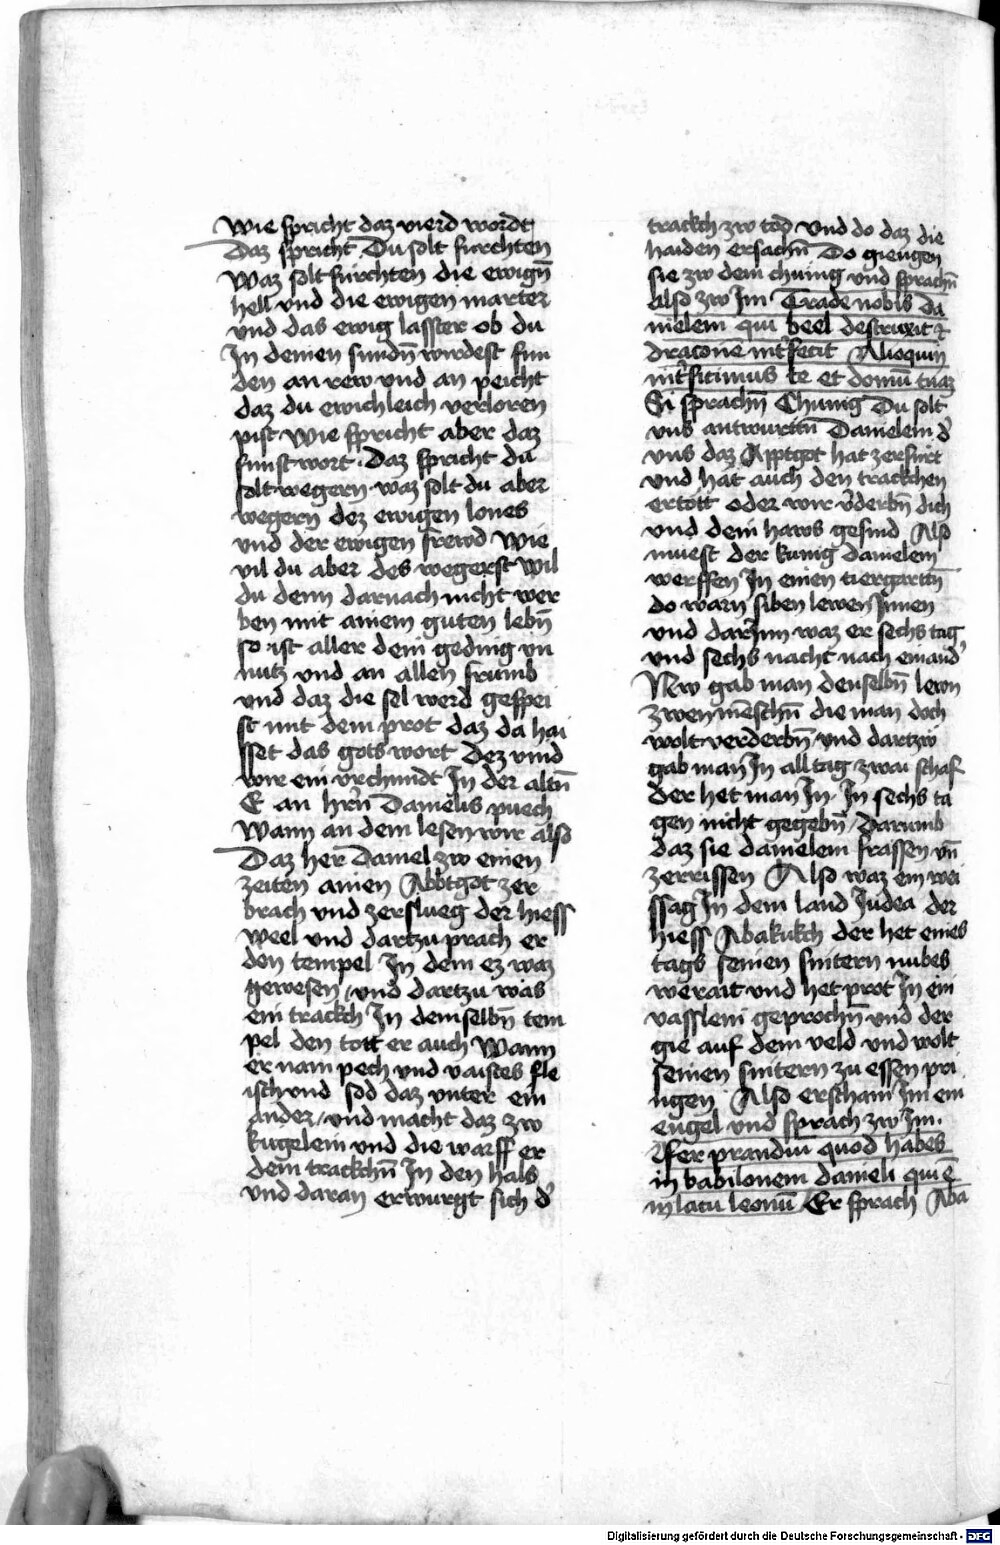 Wie spricht daz vierd wordt
Daz spricht Du solt furchten
Waz solt furchten die ewign̄
hell vnd die ewigen marter
vnd das ewig lasster ob du
In deinen sundn̄ wirdest fun
den an rew vnd an peicht
daz du ewichleich verloren
pist Wie spricht aber daz
funft wort. Daz spricht du
solt wegern waz solt du aber
wegern dez ewigen lones
vnd der ewigen frewd Wie
vil du aber des wegerst wil
du denn darnach nicht wer
ben mit ainem guten lebn̄
so ist aller dein geding vn
nutz vnd an allen frumb
vnd daz die sel werd gespei
st mit dem prot daz da hai
sset das gots wort Dez vind
wir ein vrchundt In der altn̄
E an hern̄ Danielis puech
Wann an dem lesen wir also
Daz her Daniel zw einen
zeiten ainen Abbtgot zer
brach vnd zerslueg der hiess
Weel vnd dartzu prach er
den tempel In dem ez waz
gewesen / vnd dartzu was
ein trackch In demselbn̄ tem
pel den tott er auch Wann
er nam pech vnd vaistes fle
isch vnd sod daz vnter ein
ander / vnd macht daz zw
kugelein vnd die warff er
dem trackchn̄ In den hals
vnd daran erwurgt sich d'
trackch zw tod vnd do daz die
haiden ersachn̄ Do giengen
sie zw dem chunig vnd sprachn̄
also zw Im Trade nobis Da
nielem qui beel destruxit et
dracone int'fecit Alioquin
int'ficimus te et domū tuaz
Si sprachn̄ Chunig Du solt
vns antwurttn̄ Danielem d'
vns daz Apptgot hat zersturt
vnd hat auch den trackchen
ertött oder wir v'derbn̄ dich
vnd dein haws gesind Also
muest der kunig danielem
werffen In einen tiergarttn̄
do warn siben lewen Innen
vnd darInn waz er sechs tag
vnd sechs nacht nach einand'
Nw gab man denselbn̄ lewn
zwen mēschn̄ die man doch
wolt verderbn̄ vnd dartzw
gab man In all tag zwai schaf
der het man In. In sechs ta
gen nicht gegebn̄ / Darumb
daz sie danielem frassen vn̄
zerrissen Also waz ein wei
ssag In dem land Iudea der
hiess Abakukch der het eines
tags seinen snitern mues
werait vnd het prot In ein
vasslein geprochn̄ vnd der
gie auf dem veld vnd wolt
seinen snitern zu essen pri
ngen Also erscham Im ein
engel vnd sprach zw Im.
Affer prandiū quod habes
in babilonem danieli qui ē
in lacu leonū Er sprach Aba